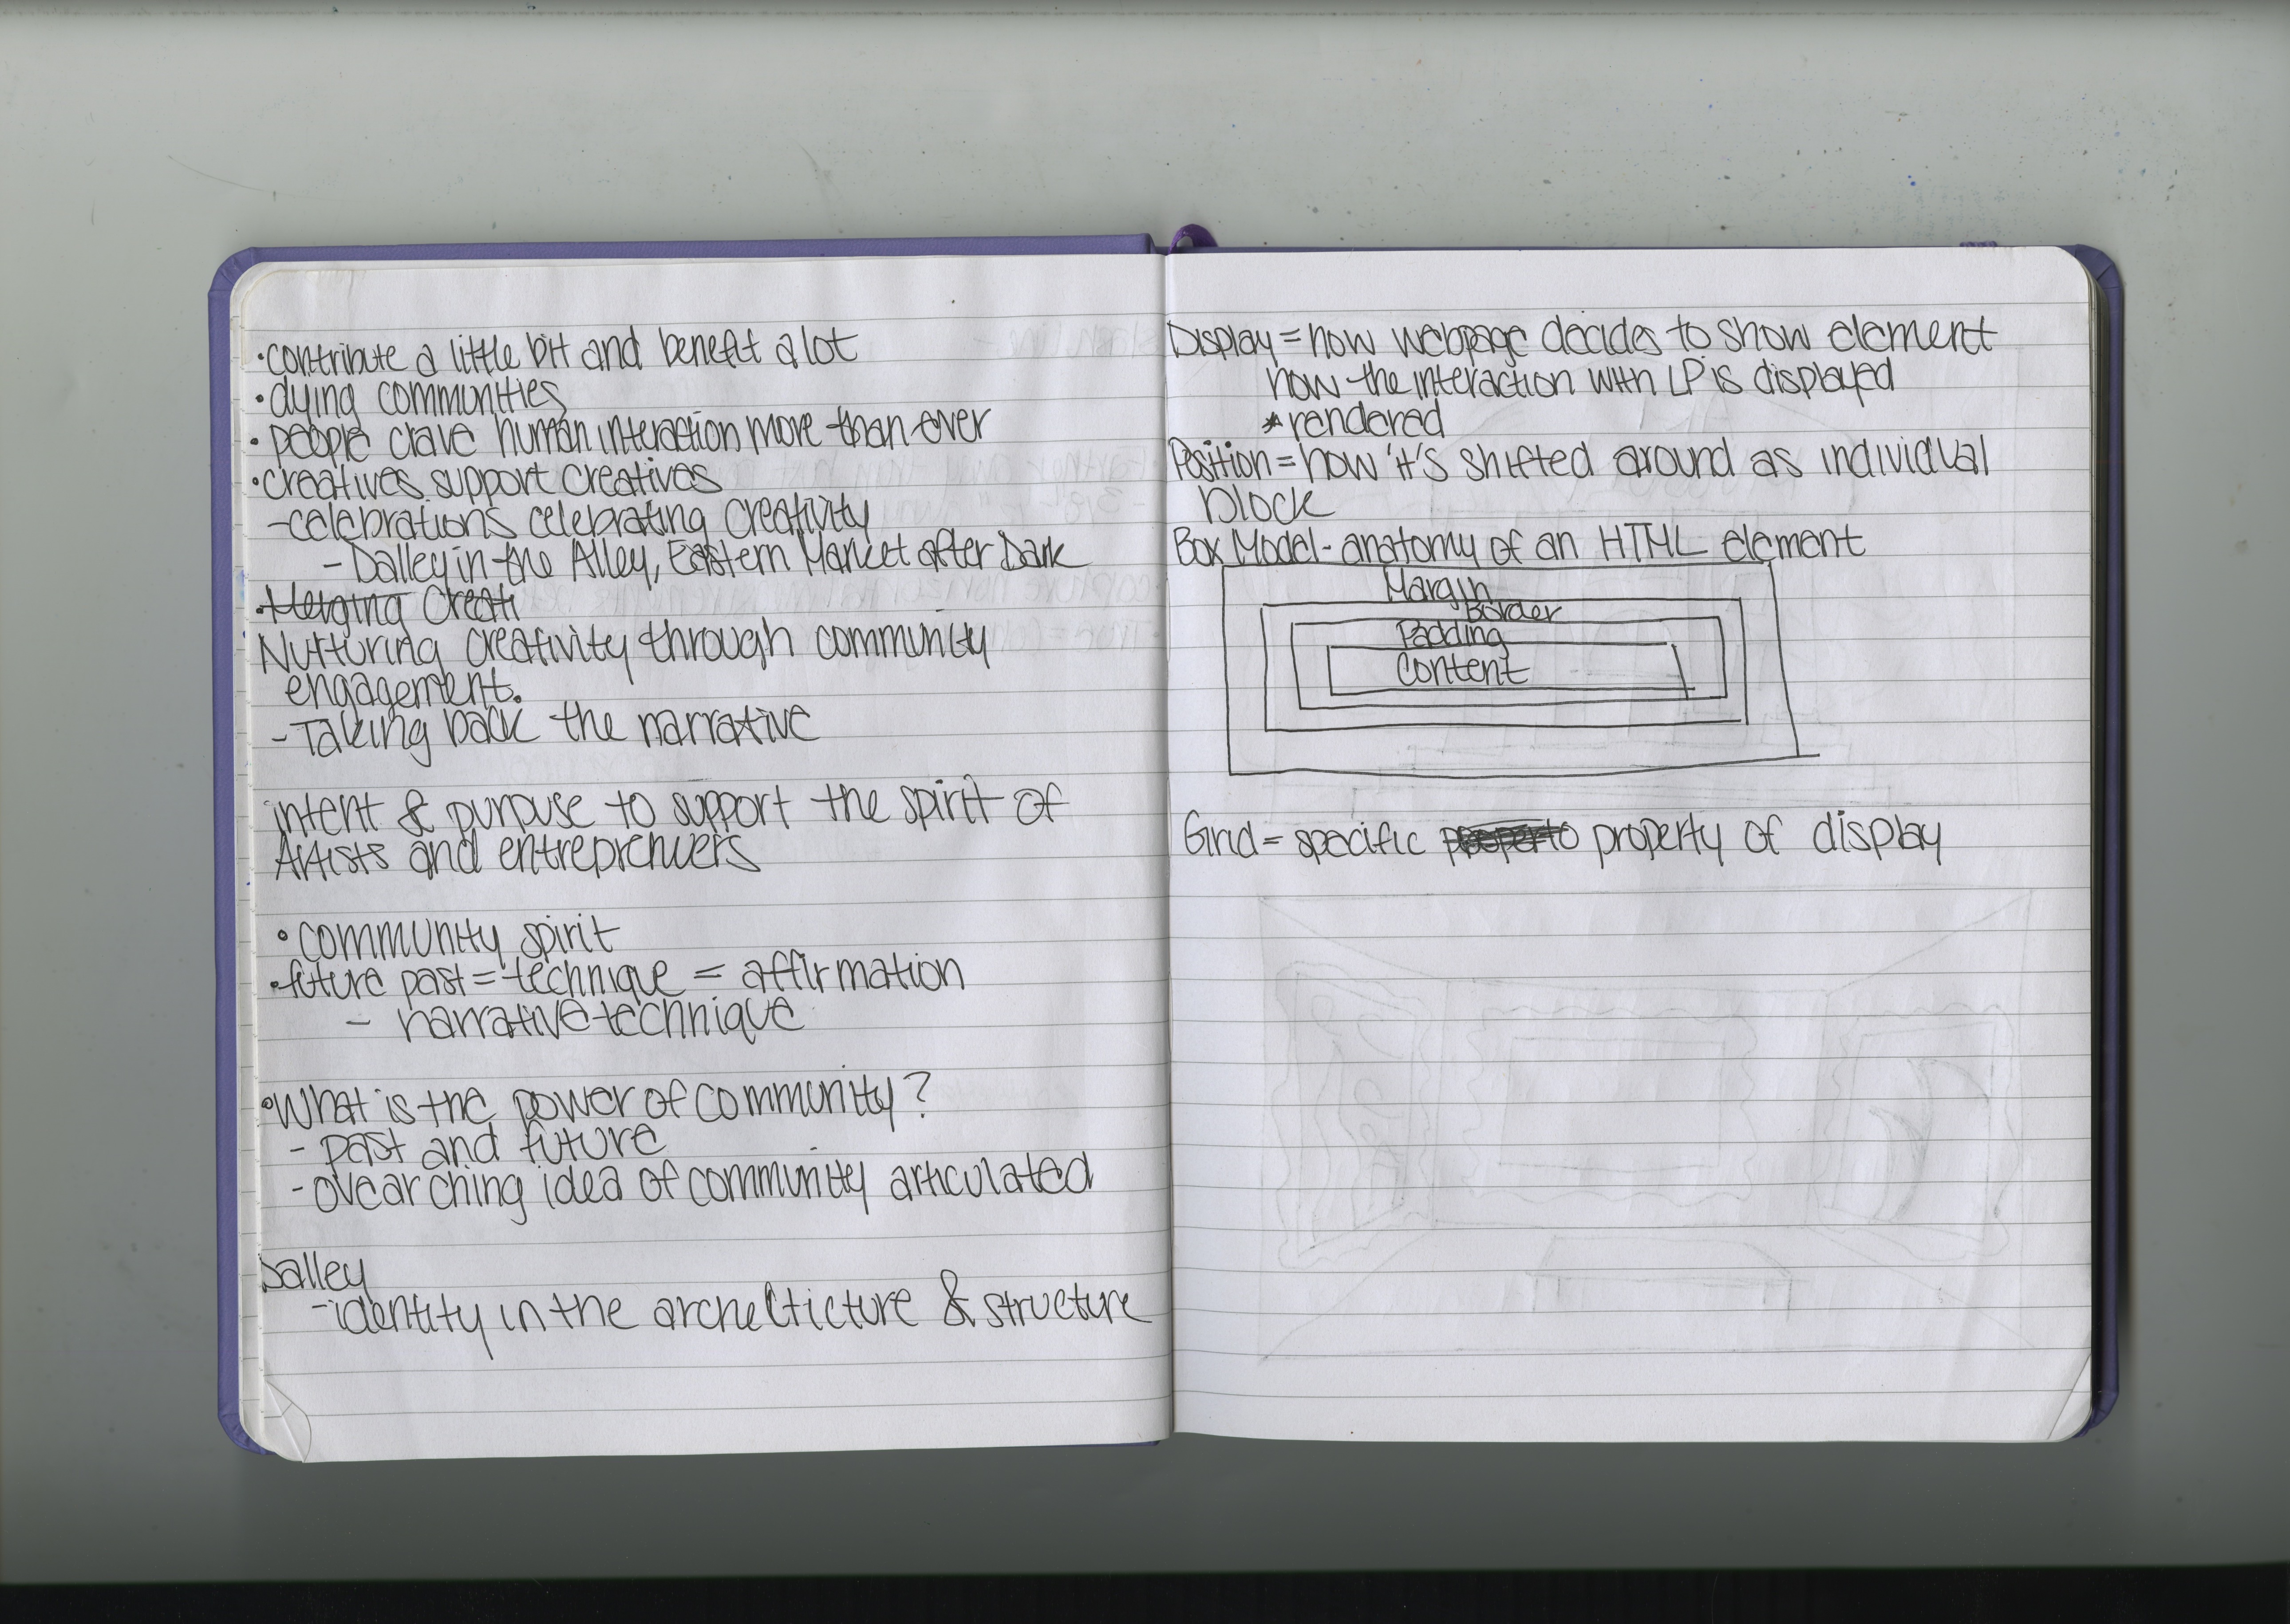 ·contribute a little bit and benefit a lot
·dying communities
·people crave human interaction more than ever
·creatives support creatives
-celebrations celebrating creativity
- Dalley in the Alley, Eastern Market after Dark
·Merging Creati
Nurturing creativity through community
engagement.
-Taking back the narrative
intent & purpuse to support the spirit of
Artists and entreprenuers
·community spirit
·future past = technique = affirmation
- narrative technique
·What is the power of community?
- past and future
-overarching idea of community articulated
Dalley
-identity in the archeticture & structure
Display = how webpage decides to show element
how the interaction with LP is displayed
*rendered
Position = how it's shifted around as individual
block
Box Model - anatomy of an HTML element
Margin
Border
Padding
Content
Grid = specific property of display